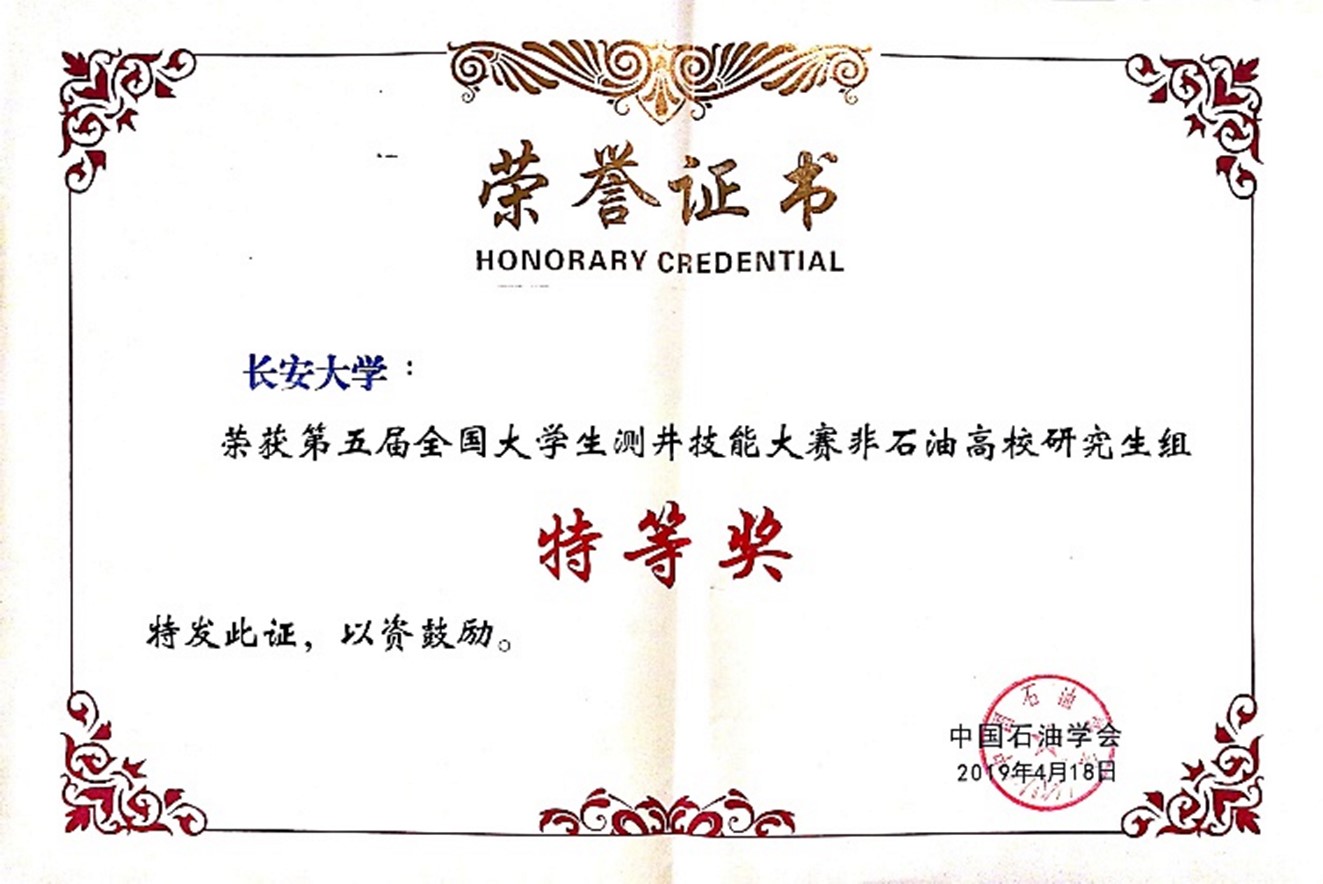 荣誉证书
HONORARY CREDENTIAL
长安大学：
荣获第五届全国大学生测井技能大赛非石油高校研究生组
特等奖
特发此证，以资鼓励。
中国石油学会
2019年4月18日